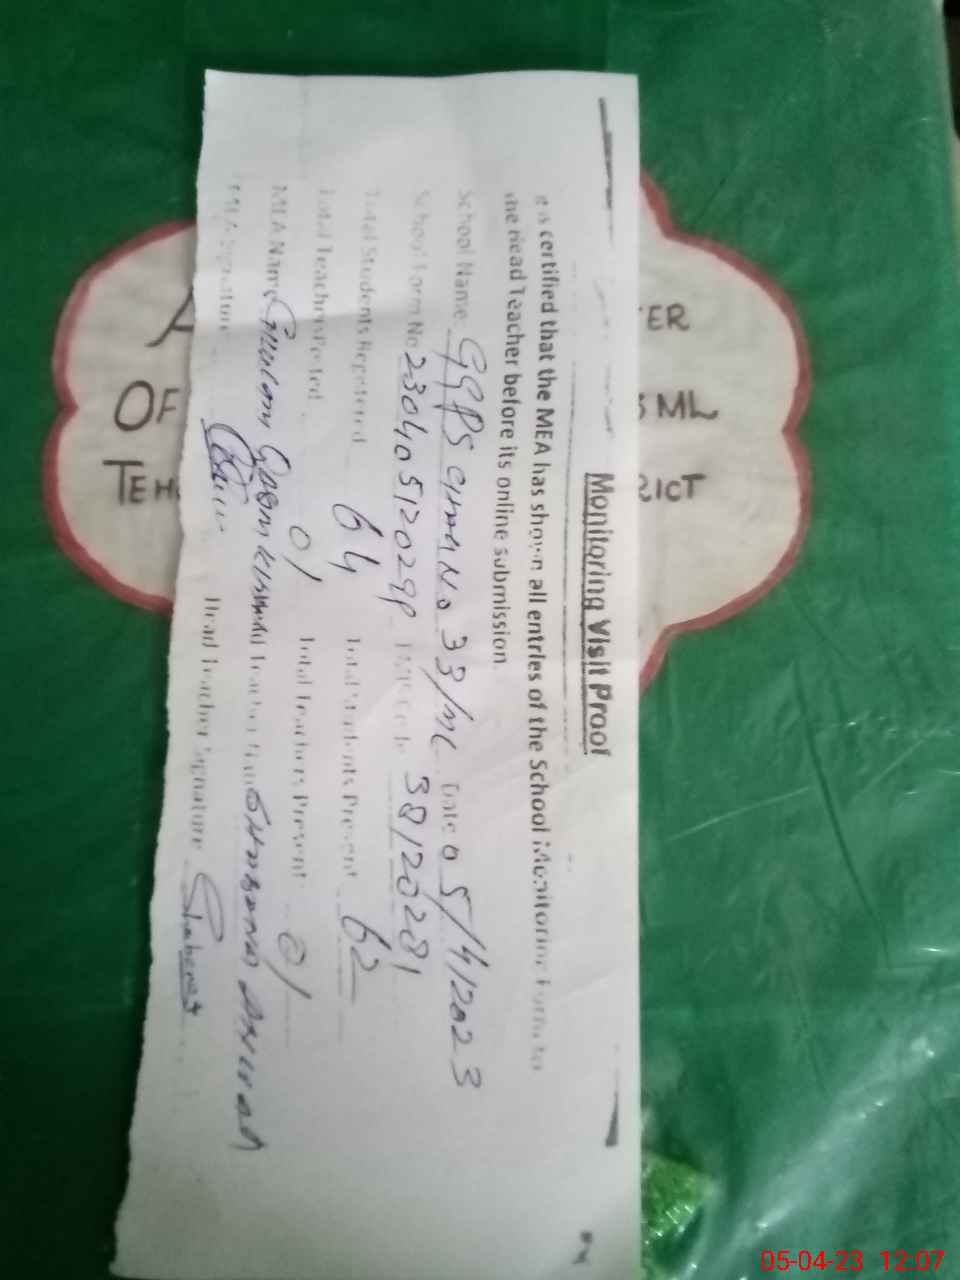 Monitoring Visit Proof
It is certified that the MEA has shown all entries of the School Monitoring Form to
the Head Teacher before its online submission.
School Name GGPS CHAK NO 33/ML Date 05/4/2023
School Form No 2304051202 Code 38120281
Total Students Registered 64 Total Students Present 62
Total Teachers Posted 01 Total Teachers Present 01
MEA Name Ghulam Qasim
MEA Signature Head Teacher Signature
ER
OF ML
TEH RICT
05-04-23 12:07